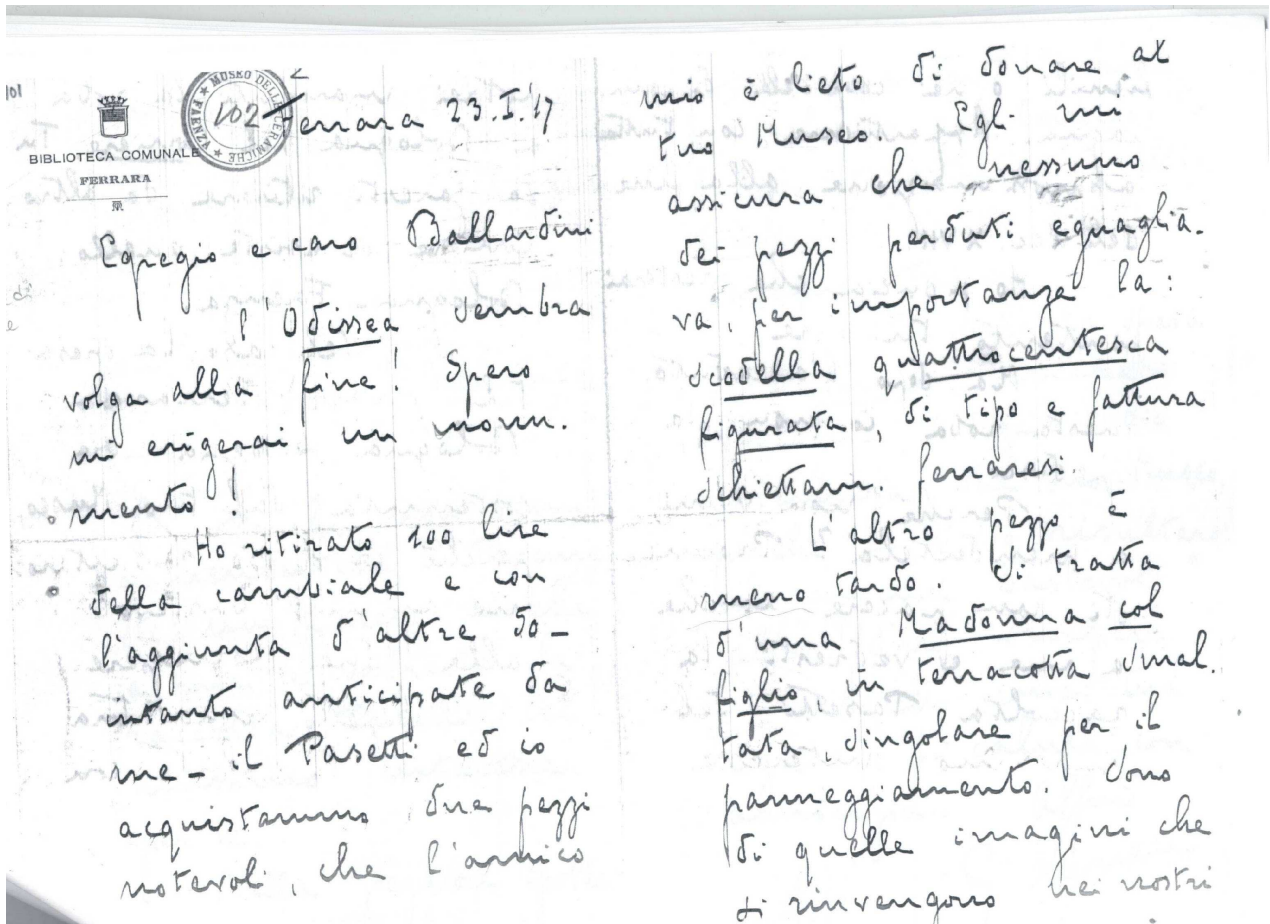 101
MUSEO DELLE CERAMICHE ★ FAENZA ★
102
BIBLIOTECA COMUNALE
FERRARA
Ferrara 23.I.'17
Egregio e caro Ballardini
l'Odissea sembra
volga alla fine! Spero
mi erigerai un monu-
mento!
Ho ritirato 100 lire
della cambiale e con
l'aggiunta d'altre 50 –
intanto anticipate da
me – il Pasetti ed io
acquistammo due pezzi
notevoli, che l'amico
mio è lieto di donare al
tuo Museo. Egli mi
assicura che nessuno
dei pezzi perduti eguaglia-
va, per importanza la:
scodella quattrocentesca
figurata, di tipo e fattura
schiettam. ferraresi.
L'altro pezzo è
meno tardo. Si tratta
d'una Madonna col
figlio, in terracotta smal-
tata, singolare per il
panneggiamento. Sono
di quelle imagini che
si rinvengono nei nostri